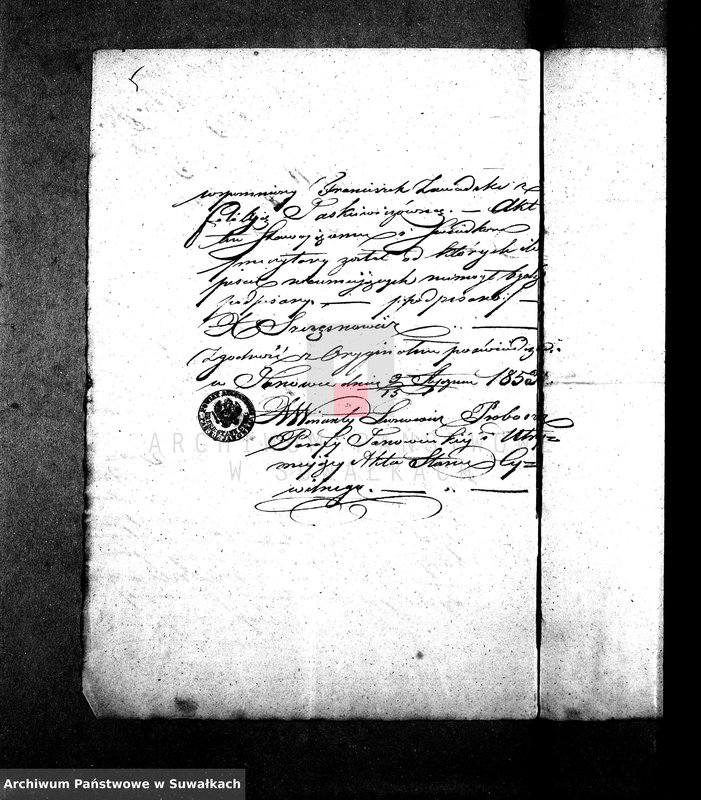 wspomniony Franciszek Zawadzki z
Felicyą Paskiewiczówną. — Akt
ten Stawającemu i Świadkom
przeczytany został od których dla
pisać nieumiejących niemógł być
podpisany — /:podpisano:/ —
X. Szczęsnowicz
Zgodność z Oryginałem poświadczam
w Janowce dnia 3/15 Stycznia 1853
X. Proboszcz
Parafy Janowieńskiej i Utrzy=
mujący Akta Stanu Cy=
wilnego. —
ARCHIWUM PAŃSTWOWE
W SUWAŁKACH
Archiwum Państwowe w Suwałkach